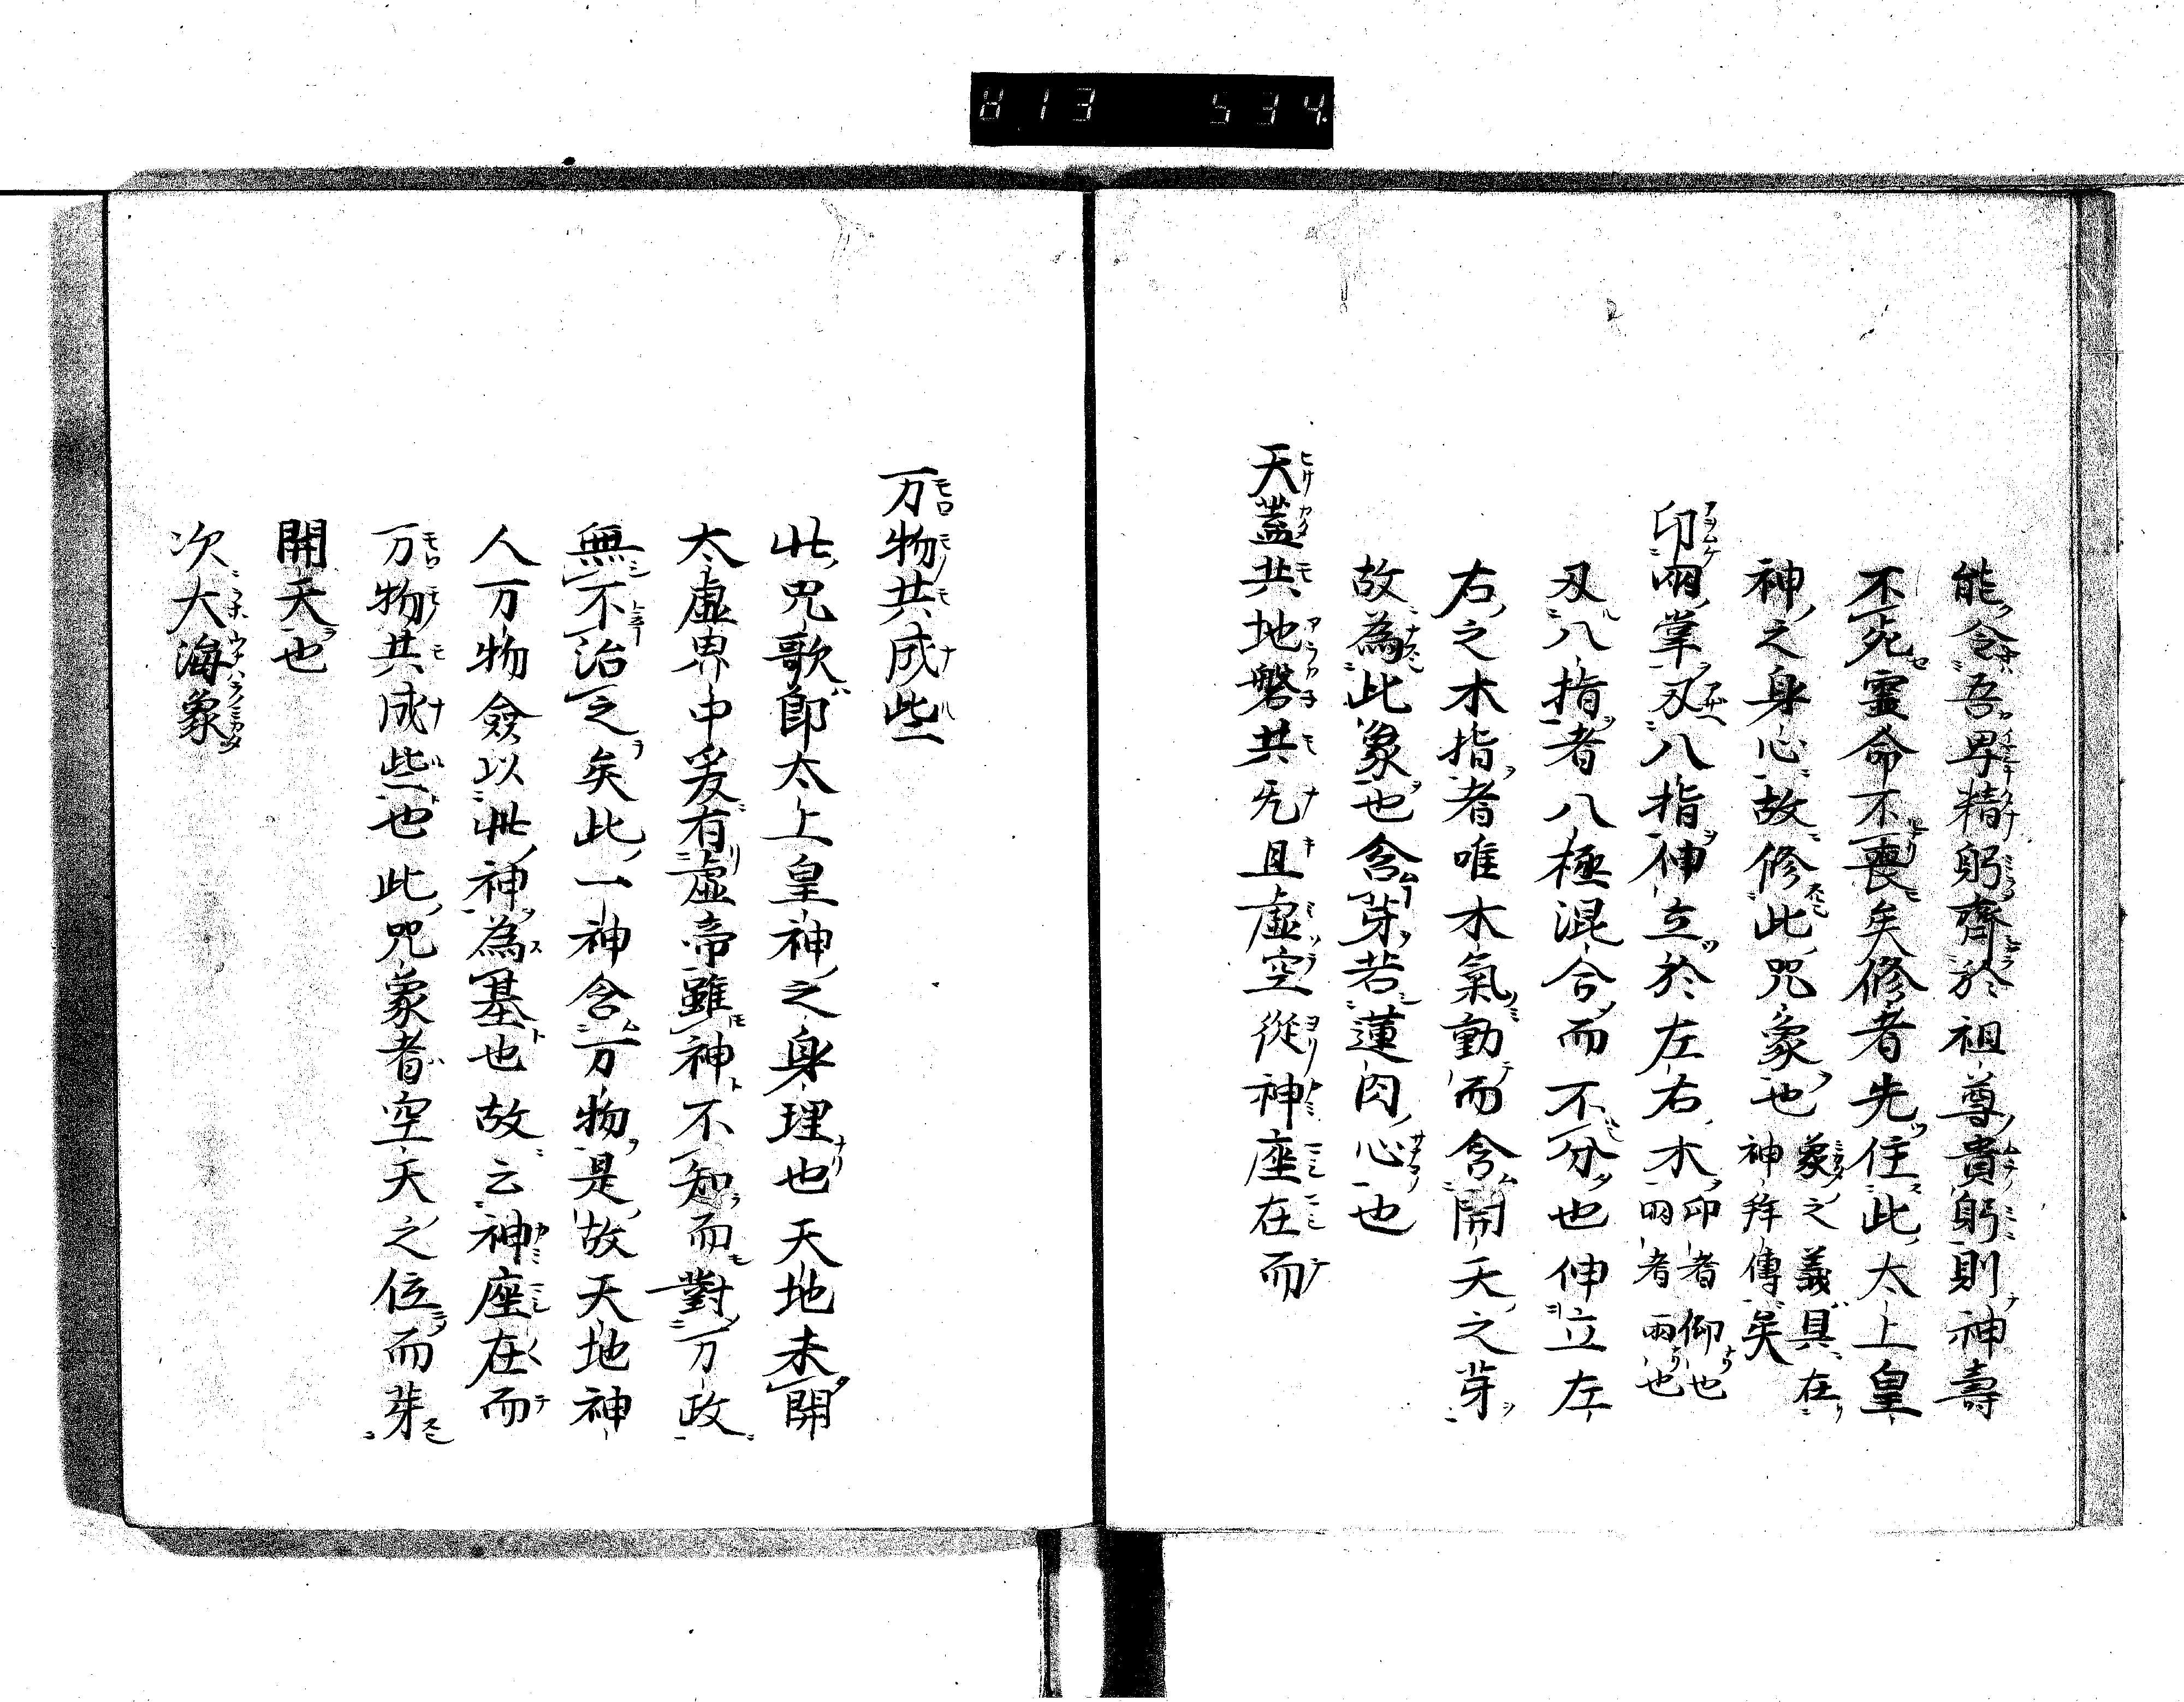 813 534
能令吾卑精躬齊於祖尊貴躬則神壽
不死霊命不喪矣修者先住此太上皇
神之身心故修此咒象也 象之義具在神拜傳矣
印兩掌刄八指伸立於左右木 印者仰也兩者兩也
刄八指者八極混合而不分也伸立左
右之木指者唯木氣動而含開天之芽
故為此象也含芽若蓮肉心也
天蓋共地磐共旡且虛空從神座在而
万物共成些
此咒歌即太上皇神之身理也天地未開
太虛界中爰有虛帝雖神不知而對万政
無不治之矣此一神含万物是故天地神
人万物僉以此神為基也故云神座在而
万物共成些也此咒象者空天之位而芽
開天也
次大海象